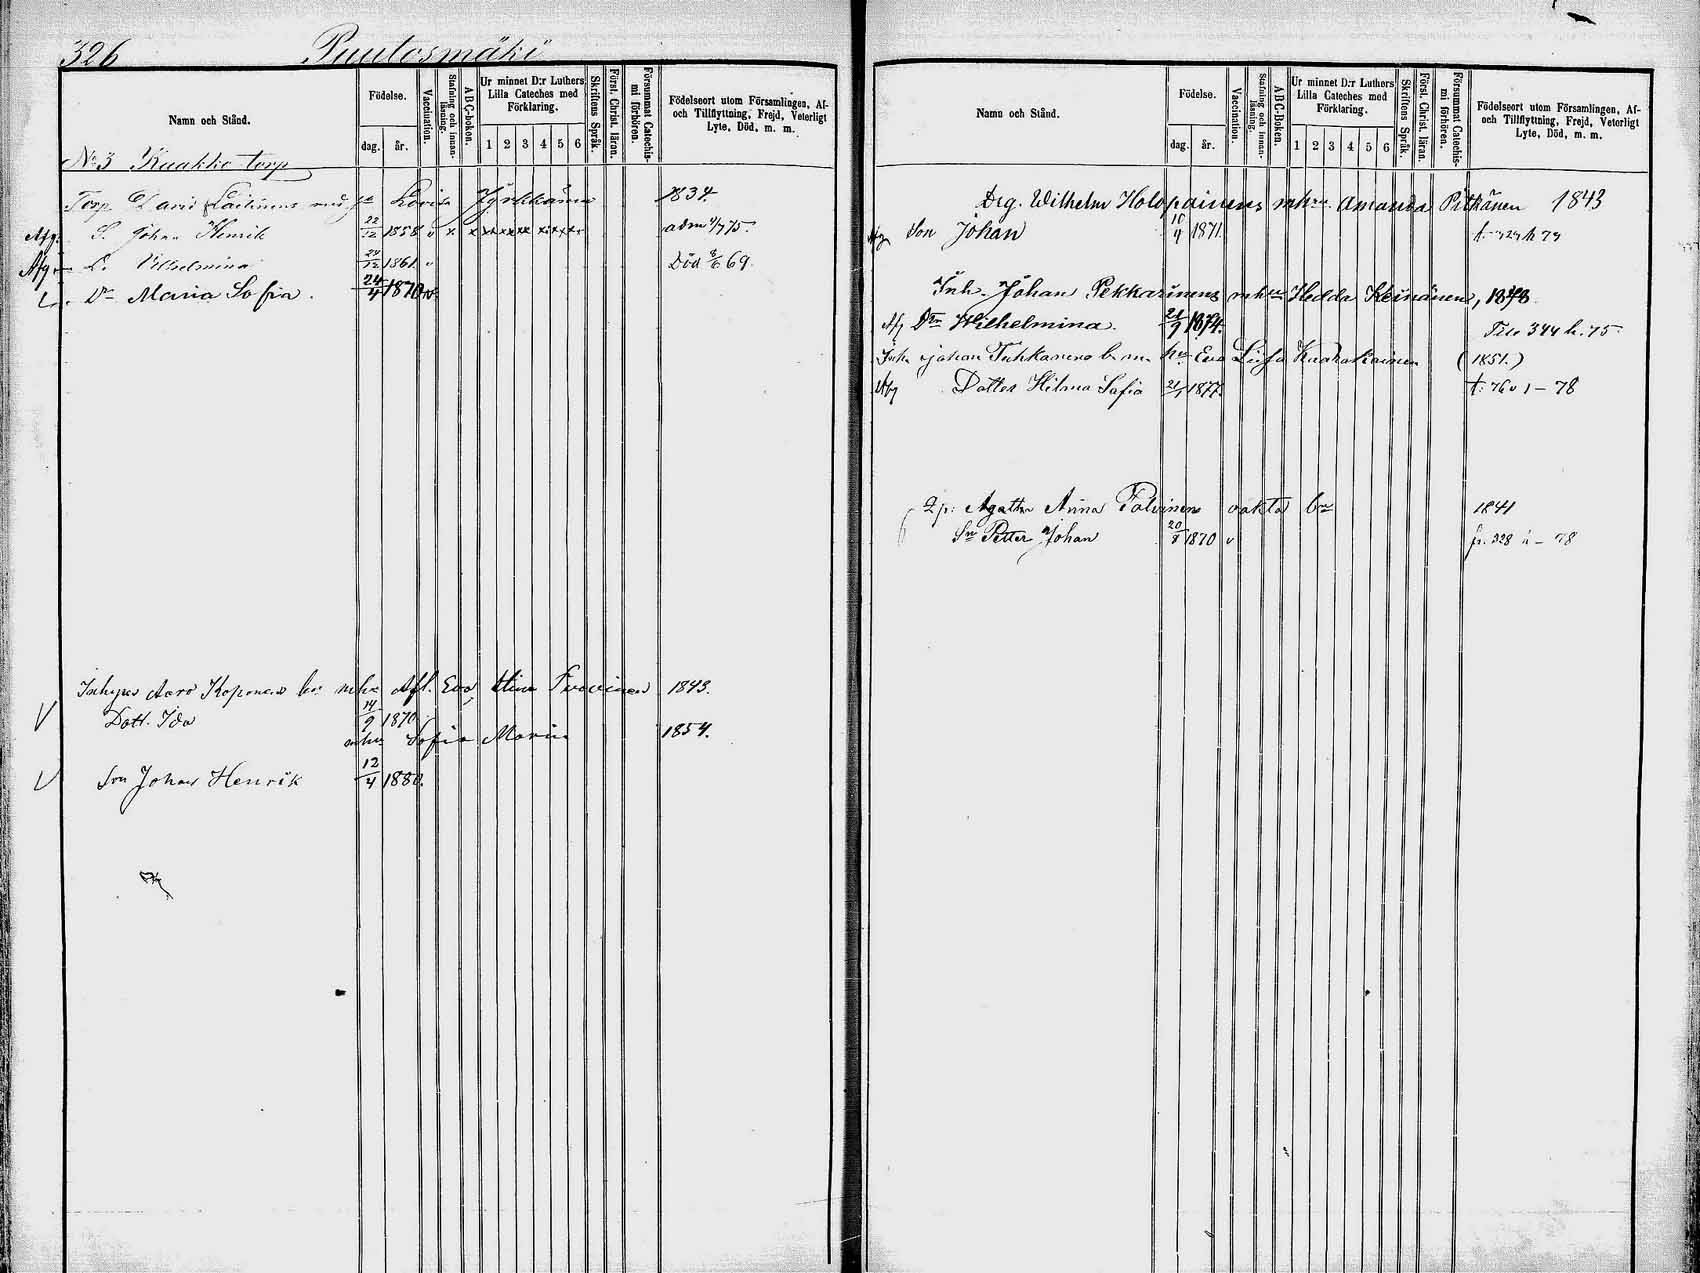 326 Puutosmäki
Namn och Stånd.
Födelse.
dag. år.
Vaccination.
Stafning och innan-läsning.
ABC-boken.
Ur minnet D:r Luthers Lilla Cateches med Förklaring.
1 2 3 4 5 6
Skriftens Språk.
Först. Christ. läran.
Försummat Catechis-mi förhören.
Födelseort utom Församlingen, Af- och Tillflyttning, Frejd, Veterligt Lyte, Död, m. m.
No 3 Kaakko torp
Torp David Laitinens Lovisa Jyrkkänen 1834.
Afg. S. Johan Henrik 22/12 1858 v x x xxxxxx adm 75.
Afg D. Vilhelmina 1861 v Död 69.
Dr Maria Sofia. 24/4 1870 v.
Inhyses Aaro Koponens mhu Afl. Eva Stina 1843.
V Dott. Ida 14/9 1870.
mhu Sofia Maria 1854.
V Son Johan Henrik 12/4 1880.
Namn och Stånd.
Födelse.
dag. år.
Vaccination.
Stafning och innan-läsning.
ABC-Boken.
Ur minnet D:r Luthers Lilla Cateches med Förklaring.
1 2 3 4 5 6
Skriftens Språk.
Först. Christ. läran.
Försummat Catechis-mi förhören.
Födelseort utom Församlingen, Af- och Tillflyttning, Frejd, Veterligt Lyte, Död, m. m.
Drg. Wilhelm Holopainens mhru Amanda Pitkänen 1843
Afg Son Johan 10/4 1871.
Inh. Johan Pekkarinens mhru Hedda Heinänen, 1848
Afg Dtr Wilhelmina. 21/9 1874. Till 344 h. 75.
Inh Johan Tuhkanens b. m. hu Eva Lisa (1851.)
Afg Dotter Hilma Sofia 21/1 1877. t: 76 v 1 – 78
Agatha Anna Tolvinens 1841
Sn Petter Johan 20/8 1870 v fr. 328 – 78